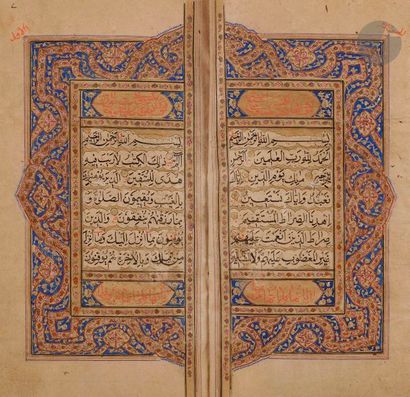 بسم الله الرحمن الرحيم
الحمد لله رب العلمين الرحمن
الرحيم ملك يوم الدين اياك
نعبد واياك نستعين
اهدنا الصراط المستقيم
صراط الذين انعمت عليهم
غير المغضوب عليهم ولا الضالين
بسم الله الرحمن الرحيم
الم ذلك الكتب لا ريب فيه
هدى للمتقين الذين يؤمنون
بالغيب ويقيمون الصلوة و
مما رزقنهم ينفقون والذين
يؤمنون بما انزل اليك وما انزل
من قبلك وبالاخرة هم يوقنون